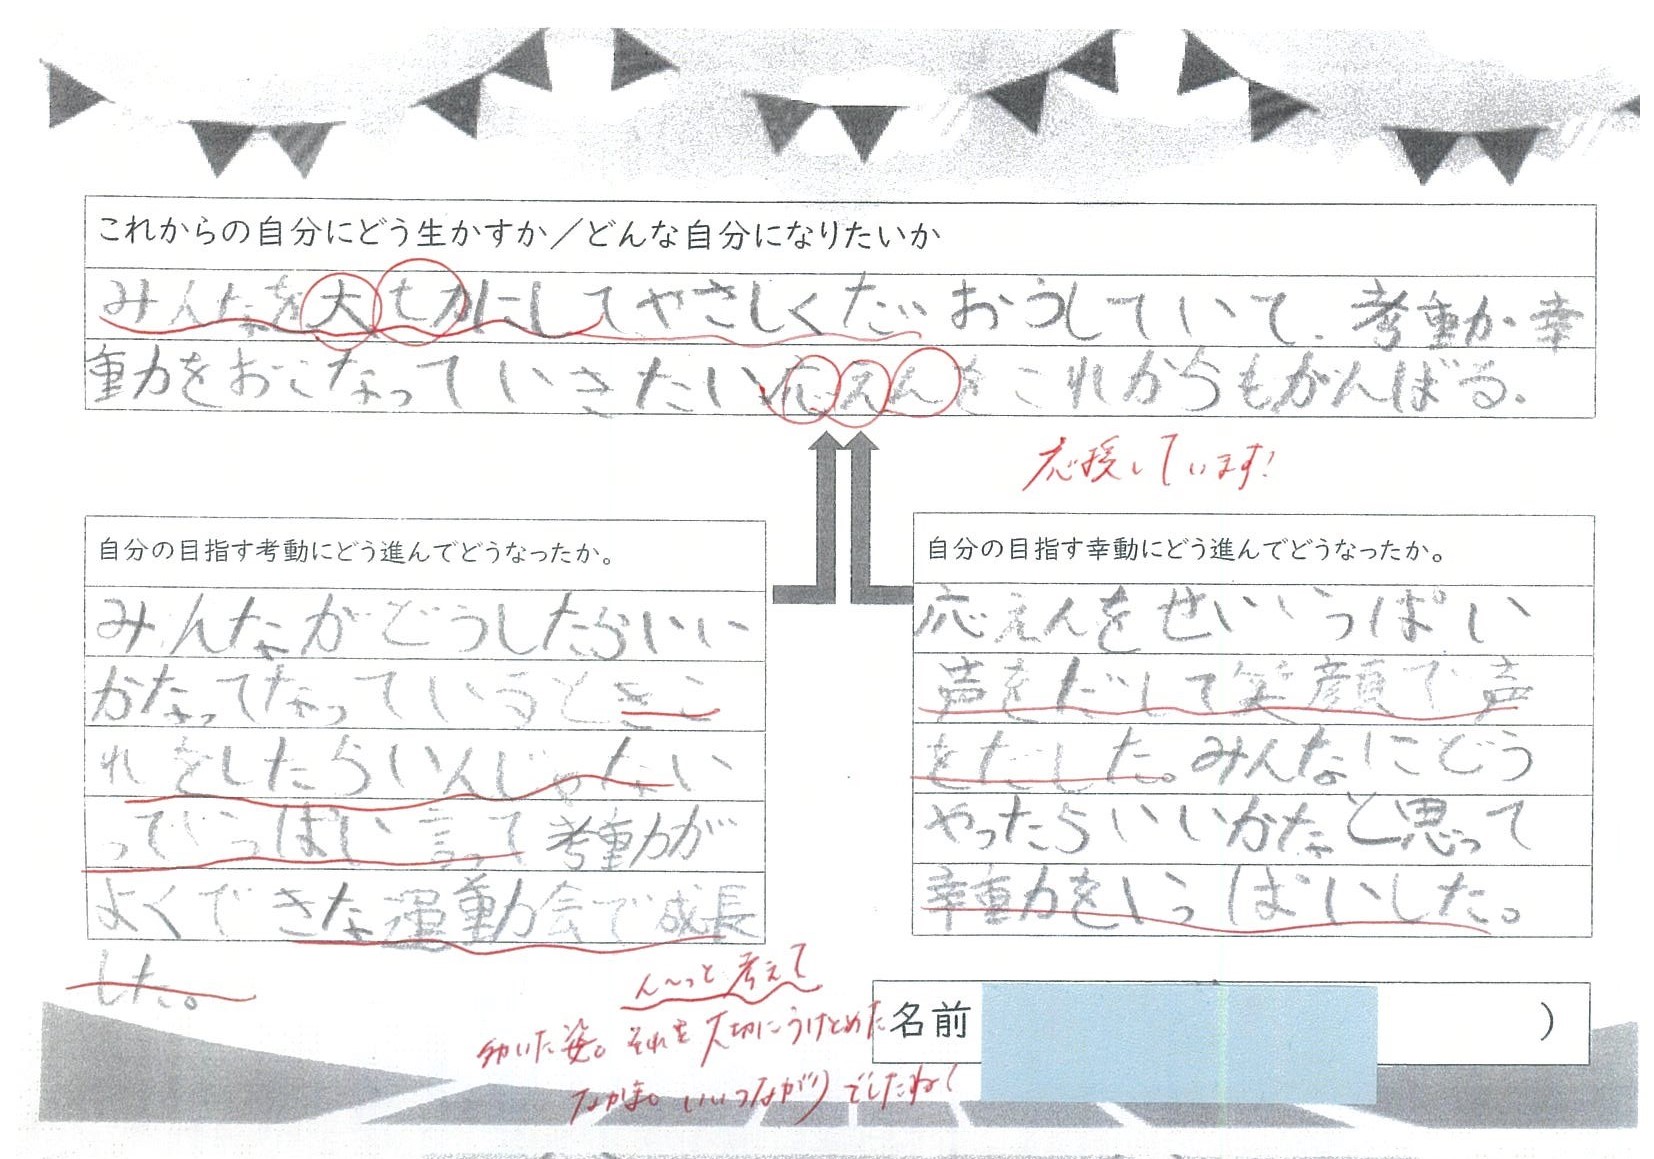 これからの自分にどう生かすか／どんな自分になりたいか
みんなを大せかにしてやさしくたいおうしていて、考動か・幸
動をおこなっていきたい、応えんをこれからもがんばる。
応援しています!
自分の目指す考動にどう進んでどうなったか。
みんながどうしたらいい
かなってなっているときこ
れをしたらいんじゃない
っていっぱい言って考動が
よくできた運動会で成長
した。
自分の目指す幸動にどう進んでどうなったか。
応えんをせいいっぱい
声をだして笑顔で声
をだした。みんなにどう
やったらいいかなと思って
幸動をいっぱいした。
ん〜っと考えて
動いた姿。それを大切にうけとめた
なかま。いいつながりでしたね!
名前
）